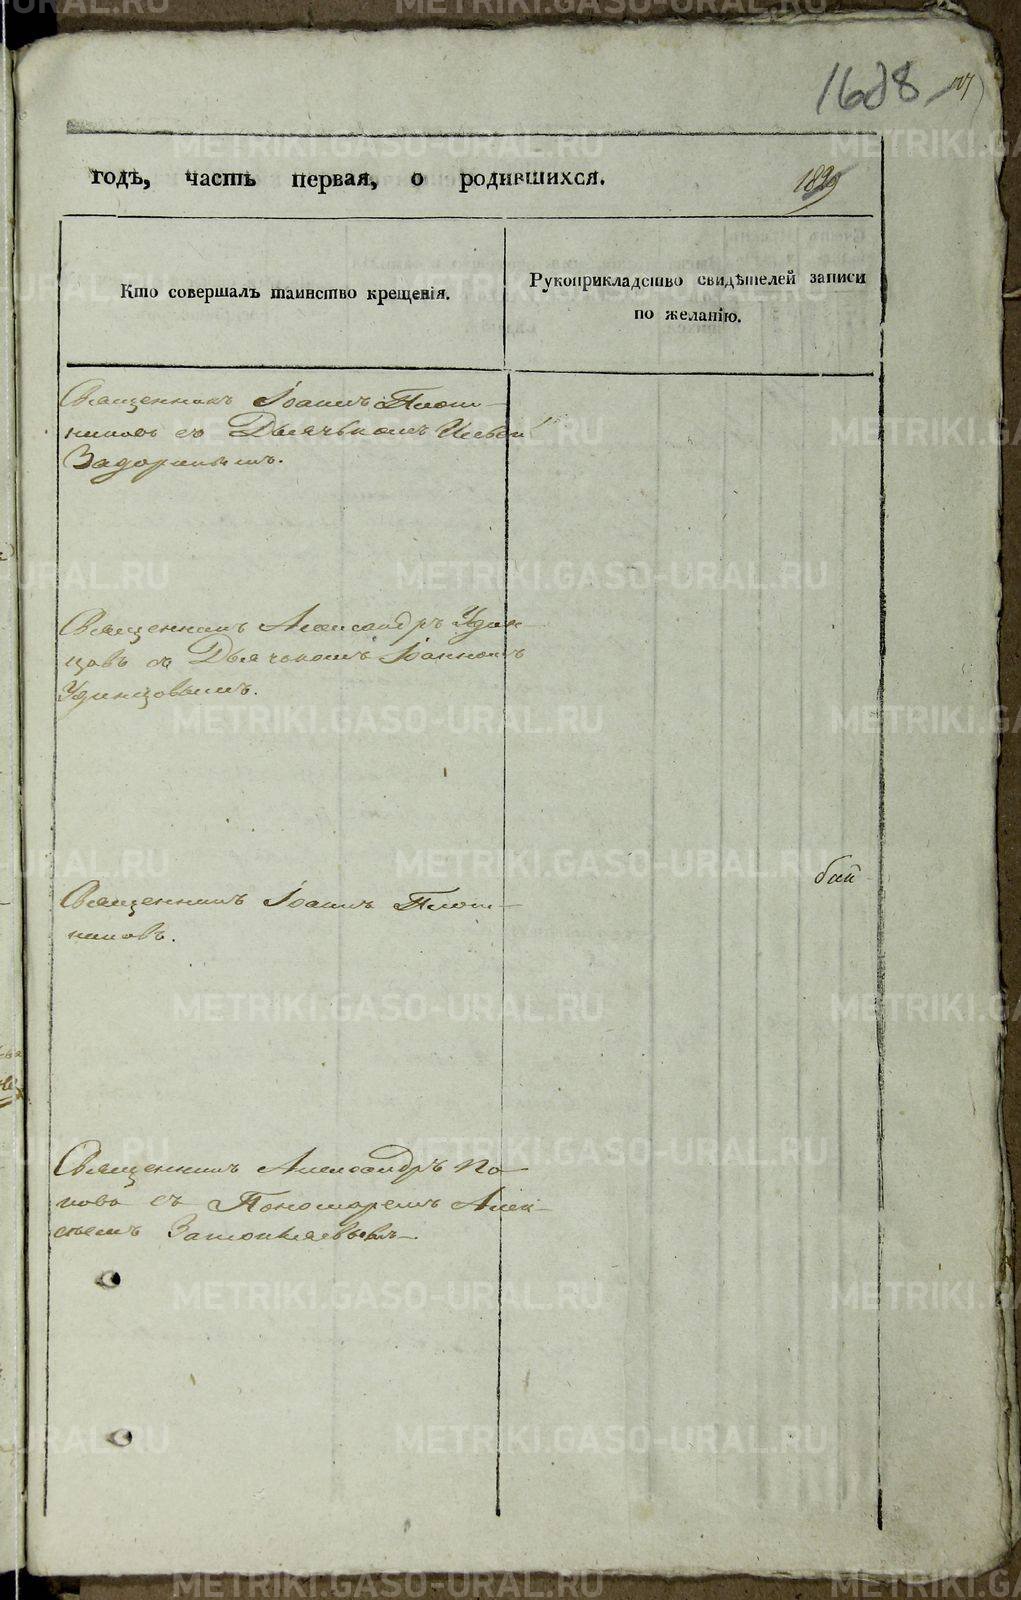 1628
годѣ, часть первая, о родившихся.
1829
Кто совершалъ таинство крещенія.
Рукоприкладство свидѣтелей записи
по желанію.
Священникъ Іоаннъ Плот-
никовъ съ Дьячькомъ Ильей
Задоринымъ.
Священникъ Александръ Удин-
цовъ съ Дьячькомъ Іоанномъ
Удинцовымъ.
Священникъ Іоаннъ Плот-
никовъ.
Священникъ Александръ По-
повъ съ Пономаремъ Алек-
сѣемъ
METRIKI.GASO-URAL.RU